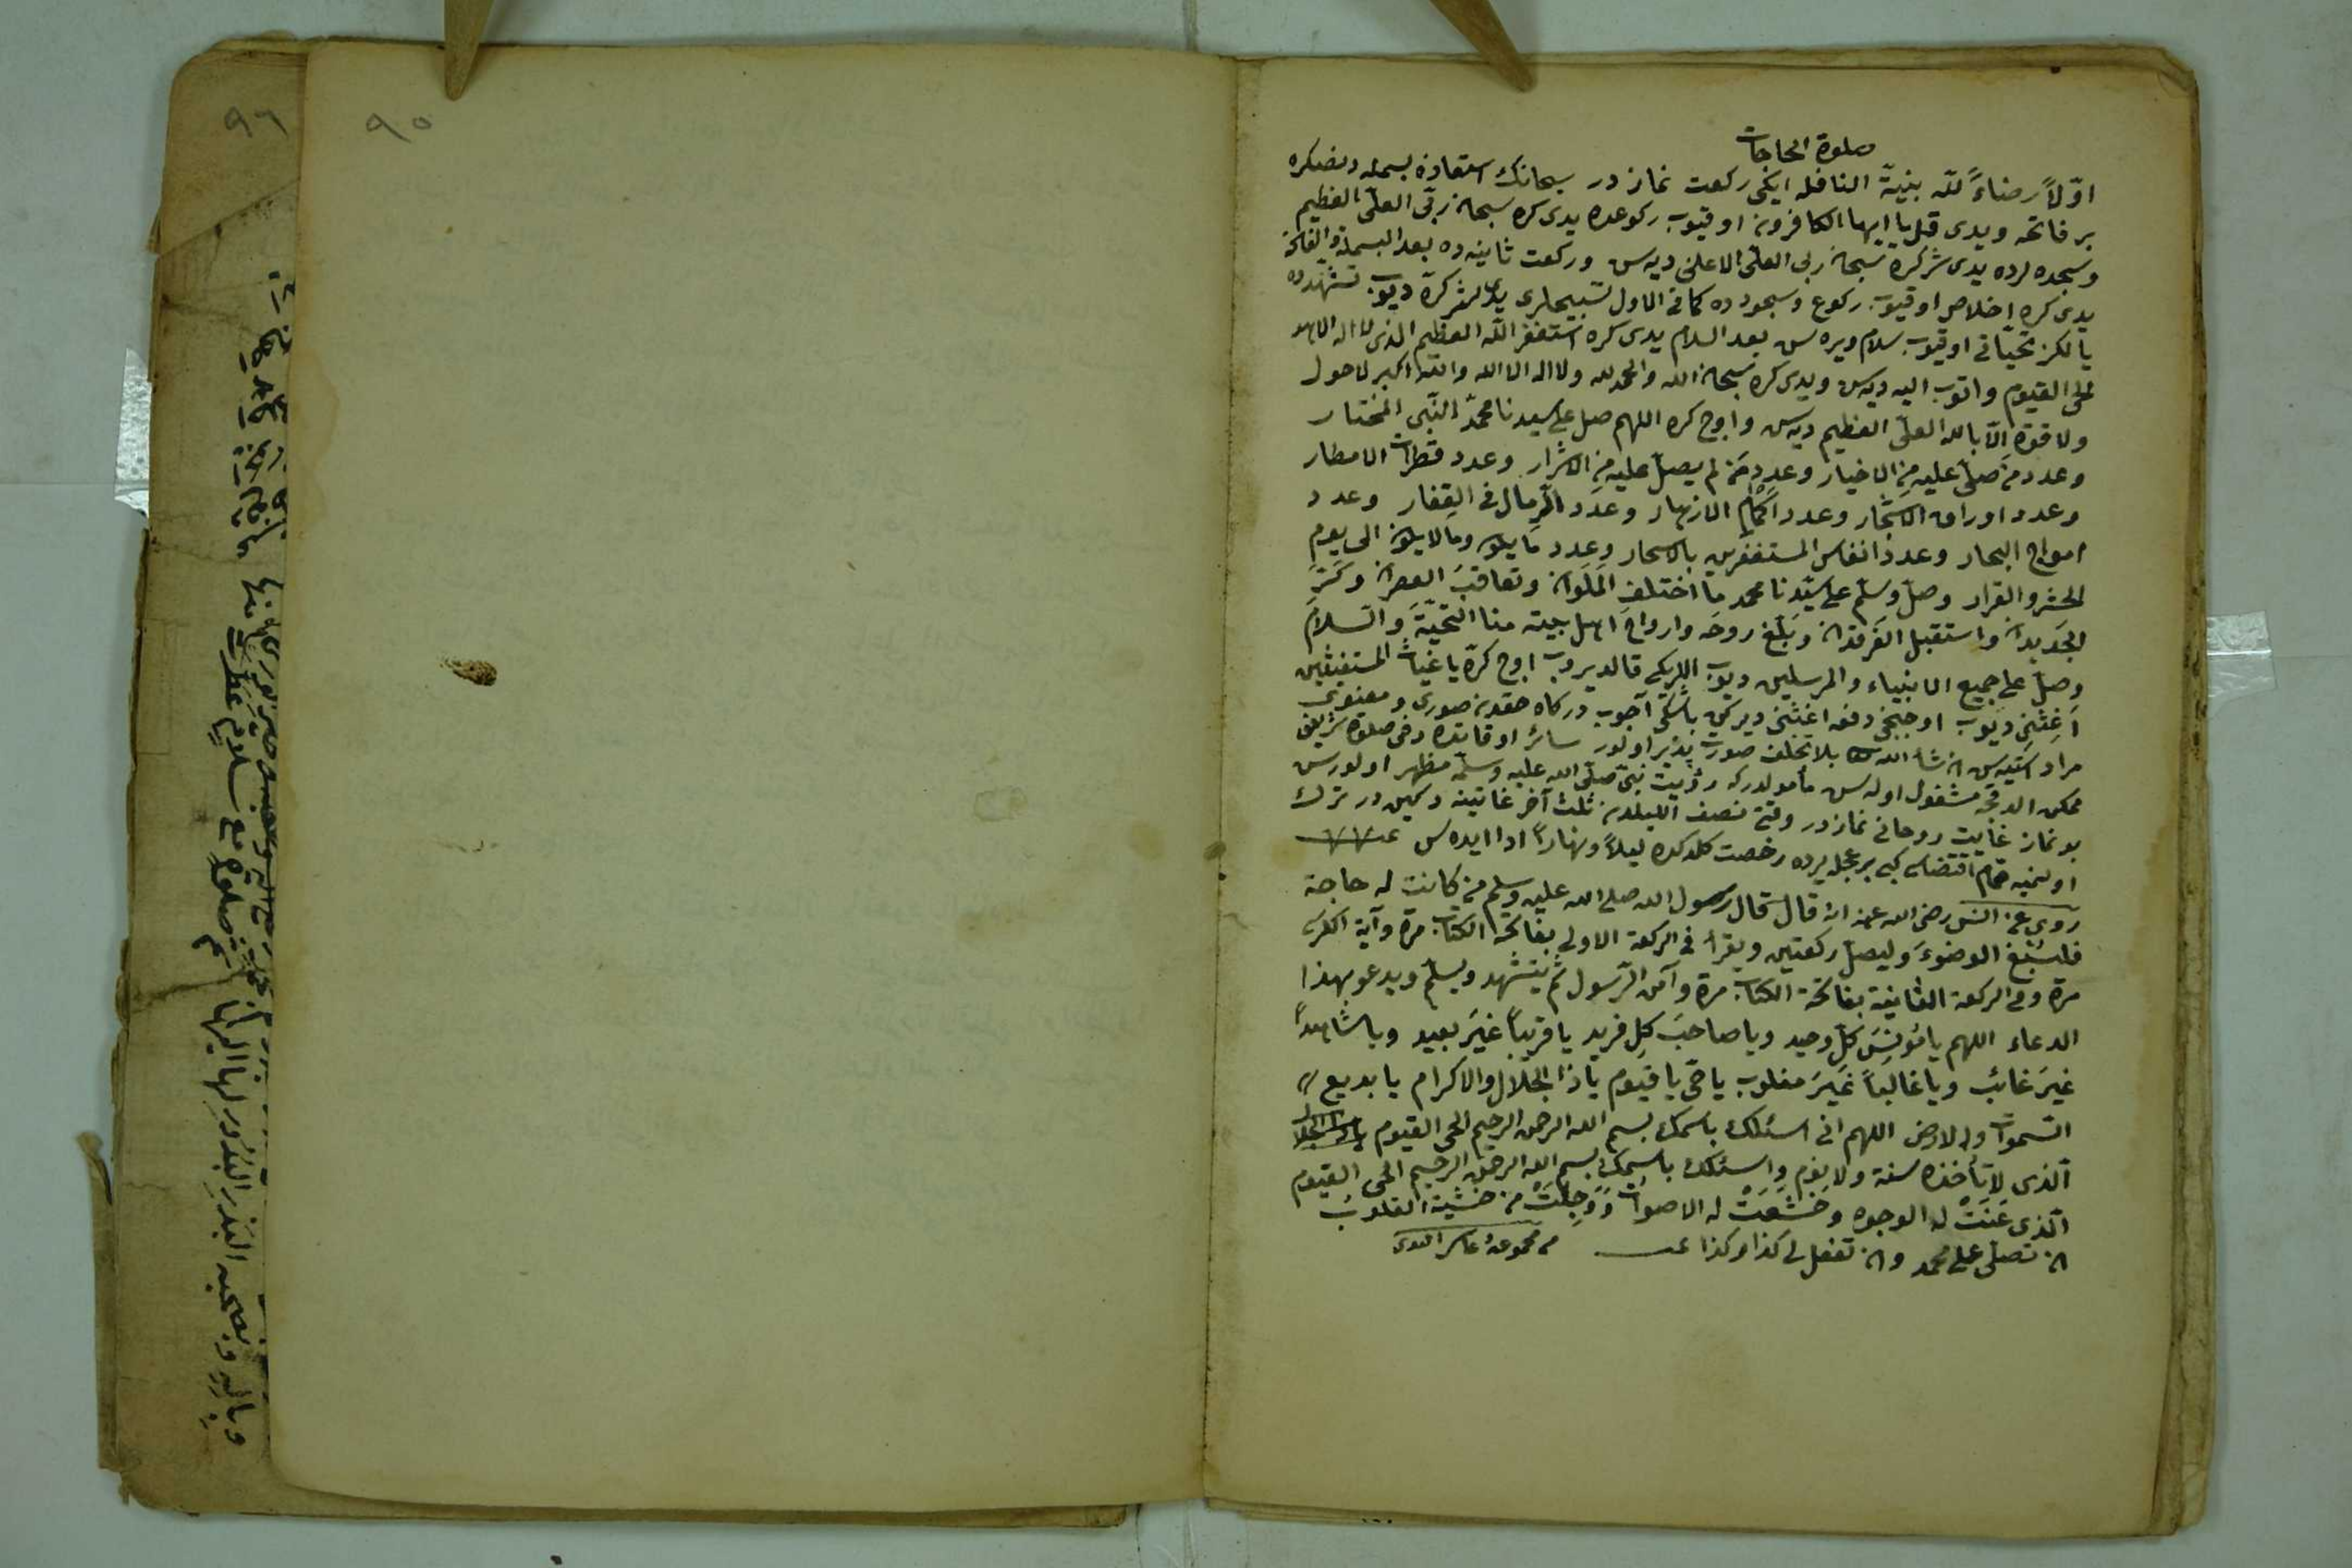 صلوة الحاجات
اوّلاً رضاءً للّه بنيّة النافله ايكى ركعت نماز در سبحانك استعاذه بسمله دنصكره
بر فاتحه ويدى قل يا ايها الكافرون اوقيوب ركوعده يدى كره سبحان ربّى العلىّ العظيم
وسجده لرده يدى شر كره سبحان ربى العلىّ الاعلى ديه سن وركعت ثانيه ده بعد البسملة والفاتحة
يدى كره اخلاص اوقيوب ركوع وسجودده كما فى الاول تسبيحلرى يدى شر كرّه ديوب تشهّدده
يالكز تحيّاتى اوقيوب سلام ويره سن بعد السلام يدى كره استغفر اللّه العظيم الذى لا اله الا هو
الحى القيوم واتوب اليه ديه سن ويدى كره سبحان اللّه والحمد لله ولا اله الا الله واللّه اكبر لا حول
ولا قوّة الّا بالله العلىّ العظيم ديه سن واوج كره اللهم صل على سيدنا محمّد النّبى المختار
وعدد من صلّى عليه من الاخيار وعدد من لم يصلّ عليه من الاشرار وعدد قطرات الامطار
وعدد اوراق الاشجار وعدد اكمام الازهار وعدد الرّمال فى القفار وعدد
امواج البحار وعدد انفاس المستغفرين بالاسحار وعدد ما يكون وما لا يكون الى يوم
الحشر والقرار وصلّ وسلّم على سيّدنا محمد ما اختلف الملوان وتعاقب العصران وكرّ
الجديدان واستقبل الفرقدان وبلّغ روحه وارواح اهل بيته منا التحيّة والسّلام
وصلّ على جميع الانبياء والمرسلين ديوب اللريكى قالديروب اوج كرّه يا غياث المستغيثين
اغثنى ديوب اوجنجى دفعه اغثنى ديركن باشكى آجوب دركاه حقدن صورى ومعنوى
مراد استيه سن ان شاء الله بلا تخلف صورت پذير اولور سائر اوقاتده دخى صلوة شريفى
ممكن الدقجه مشغول اوله سن مأمولدركه رؤيت نبىّ صلّى الله عليه وسلّم مظهر اولورسن
بو نماز غايت روحانى نماز در وقتى نصف الليلدن ثلث آخر غايتينه دكين در ترك
اولنميه مقام اقتضاسى كبى بر محل يرده رخصت كلدكده ليلاً ونهاراً ادا ايده سن
روى عن انس رضى الله عنه انه قال قال رسول الله صلى الله عليه وسلم من كانت له حاجة
فليسبغ الوضوء وليصلّ ركعتين ويقرأ فى الركعة الاولى بفاتحة الكتاب مرة وآية الكرسى
مرة وفى الركعة الثانية بفاتحة الكتاب مرة وآمن الرّسول ثم يتشهد ويسلّم ويدعو بهذا
الدعاء اللهم يا مؤنس كلّ وحيد ويا صاحب كل فريد يا قريباً غير بعيد ويا شاهداً
غير غائب ويا غالباً غير مغلوب يا حى يا قيوم يا ذا الجلال والاكرام يا بديع
السّموات والارض اللهم انى اسئلك باسمك بسم الله الرحمن الرحيم الحى القيوم
الّذى لا تأخذه سنة ولا نوم واسئلك باسمك بسم الله الرحمن الرحيم الحى القيوم
الّذى عنت له الوجوه وخشعت له الاصوات ووجلت من خشية القلوب
ان تصلّى على محمد وان تفعل لى كذا وكذا
من مجموعۀ
٩٥
٩٦